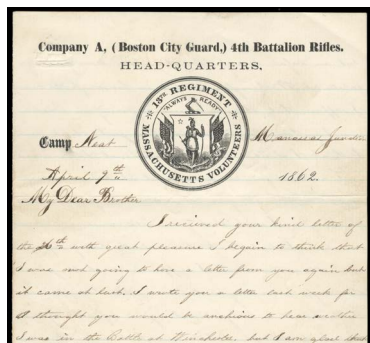 Company A, (Boston City Guard,) 4th Battalion Rifles.
HEAD-QUARTERS,
13th REGIMENT
"ALWAYS READY"
MASSACHUSETTS VOLUNTEERS
Camp Near Manassas Junction
April 9th 1862.
My Dear Brother
I received your kind letter of
the 26th with great pleasure I begain to think that
I was not going to have a letter from you again but
it came at last. I wrote you a letter last week for
I thought you would be anchious to hear wether
I was in the Battle at Winchester, but I am glad that